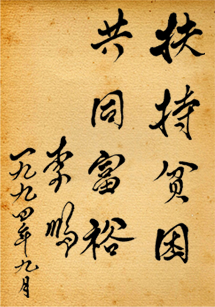 扶持贫困
共同富裕
李鹏
一九九四年九月